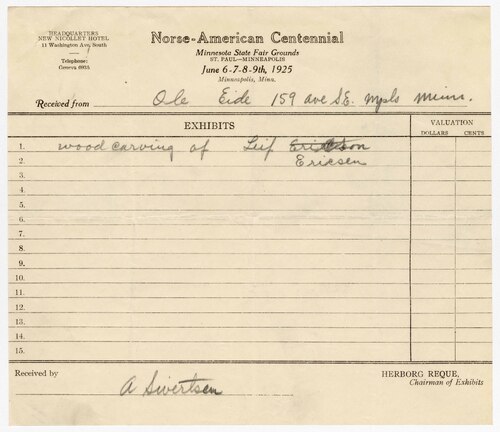 HEADQUARTERS
NEW NICOLLET HOTEL
11 Washington Ave, South
Telephone:
Geneva 6935
Norse-American Centennial
Minnesota State Fair Grounds
ST. PAUL—MINNEAPOLIS
June 6-7-8-9th, 1925
Minneapolis, Minn.
Received from Ole Eide 159 ave S.E. Mpls Minn.
EXHIBITS
VALUATION
DOLLARS CENTS
1. wood carving of Leif
2. Ericsen
3.
4.
5.
6.
7.
8.
9.
10.
11.
12.
13.
14.
15.
Received by A Sivertsen
HERBORG REQUE,
Chairman of Exhibits